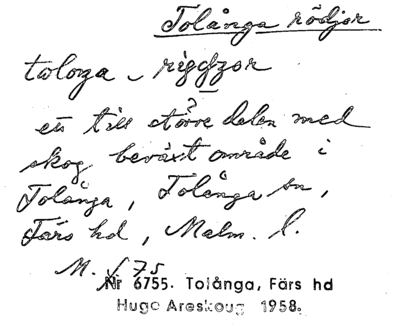 Tolånga rödjor
ett till större delen med
skog beväxt område i
Tolånga, Tolånga sn,
Färs hd, Malm. l.
M. 75
Nr 6755. Tolånga, Färs hd
Hugo Areskoug 1958.